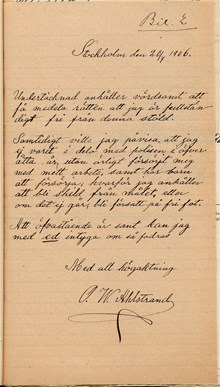 Bil. E
Stockholm den 24/7 1906.
Undertecknad anhåller vördsamt att
få medela rätten att jag är fullstän
digt fri från denna stöld.
Samtidigt vill jag påvisa, att jag
ej varit i delo med polisen i öfver
åtta år, utan ärligt försörjt mig
med mitt arbete, samt har barn
att försörja, hvarför jag anhåller
att bli skild från målet, eller
om det ej går, bli försatt på fri fot.
Att ofvastående är sant kan jag
med ed intyga om så fodras
Med all högaktning
A. W. Ahlstrand